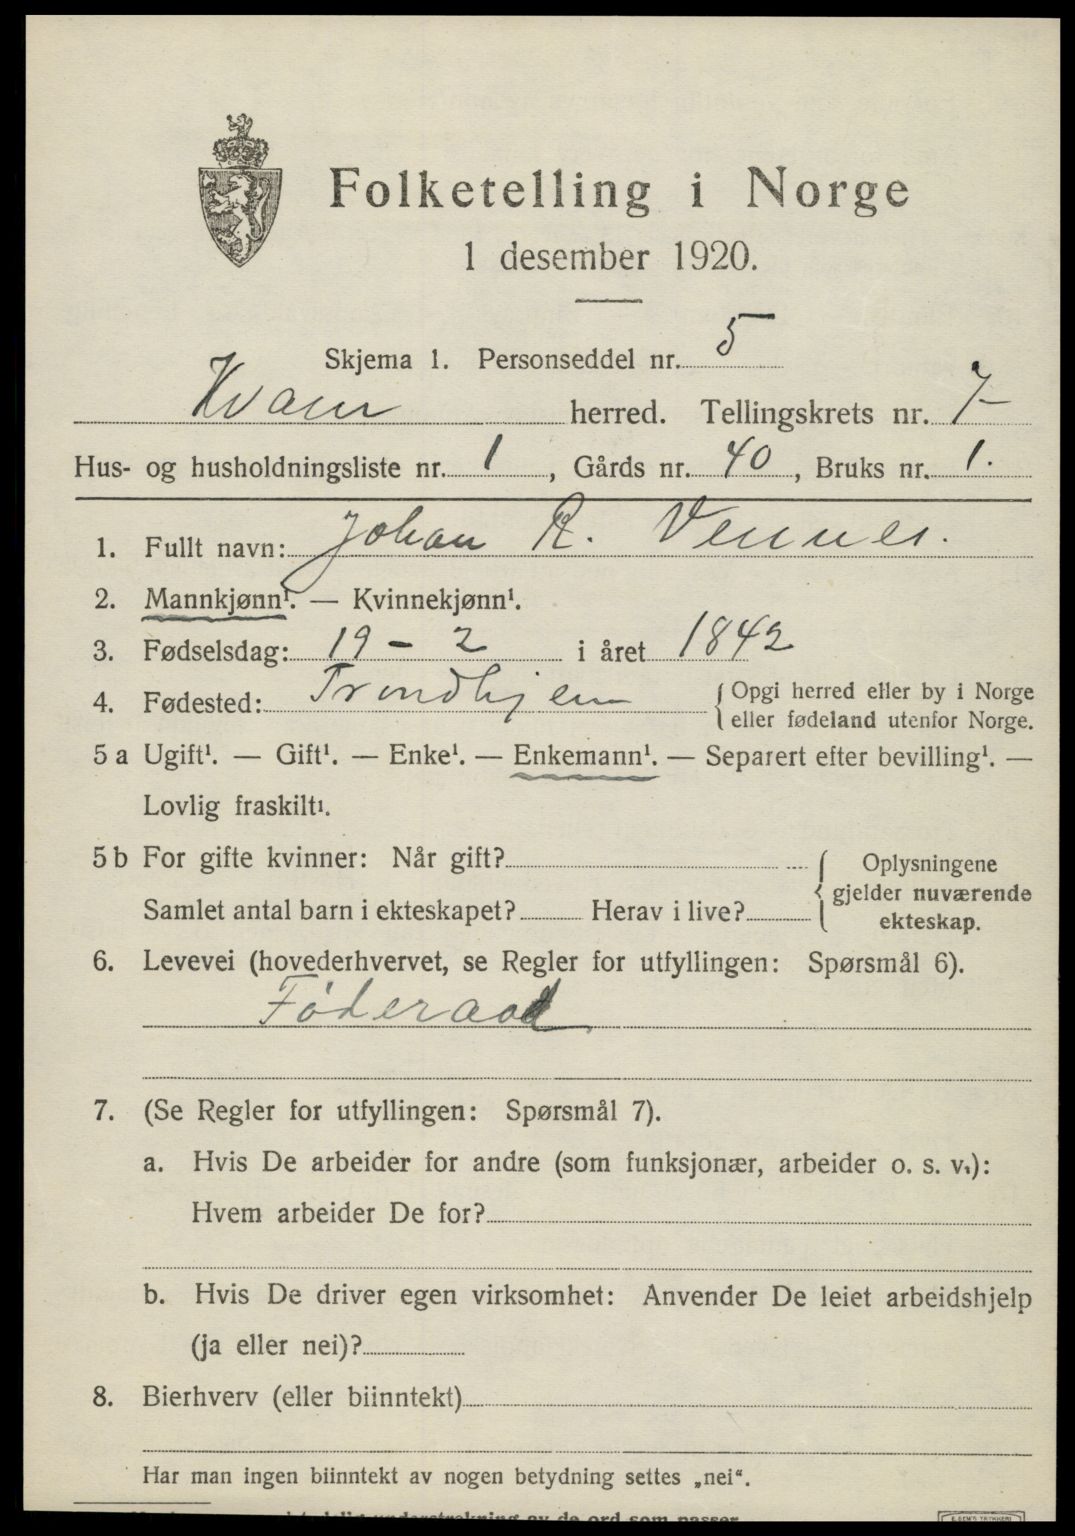 Folketelling i Norge
1 desember 1920.
Skjema 1. Personseddel nr. 5
Kvam herred. Tellingskrets nr. 7
Hus- og husholdningsliste nr. 1, Gårds nr. 40, Bruks nr. 1.
1. Fullt navn: Johan R. Vennes.
2. Mannkjønn¹. — Kvinnekjønn¹.
3. Fødselsdag: 19 - 2 i året 1842
4. Fødested: Trondhjem { Opgi herred eller by i Norge
eller fødeland utenfor Norge.
5 a Ugift¹. — Gift¹. — Enke¹. — Enkemann¹. — Separert efter bevilling¹. —
Lovlig fraskilt¹.
5 b For gifte kvinner: Når gift? { Oplysningene
gjelder nuværende
Samlet antal barn i ekteskapet? Herav i live? ekteskap.
6. Levevei (hovederhvervet, se Regler for utfyllingen: Spørsmål 6).
Føderaad
7. (Se Regler for utfyllingen: Spørsmål 7).
a. Hvis De arbeider for andre (som funksjonær, arbeider o. s. v.):
Hvem arbeider De for?
b. Hvis De driver egen virksomhet: Anvender De leiet arbeidshjelp
(ja eller nei)?
8. Bierhverv (eller biinntekt)
Har man ingen biinntekt av nogen betydning settes „nei“.
understrekning av de ord som passer.